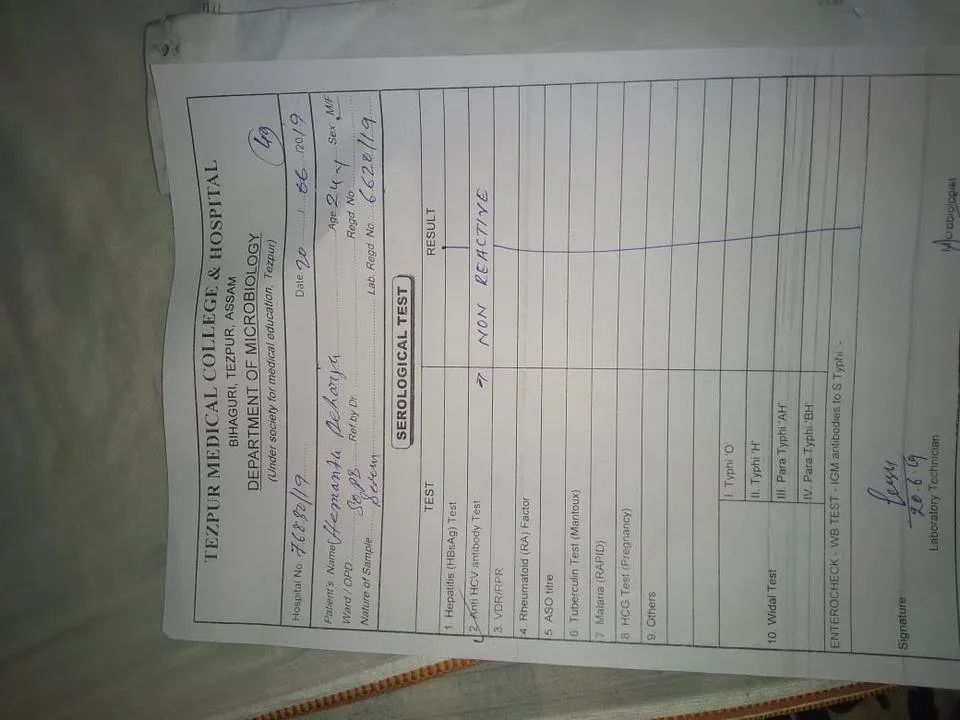 TEZPUR MEDICAL COLLEGE & HOSPITAL
BIHAGURI, TEZPUR, ASSAM
DEPARTMENT OF MICROBIOLOGY
(Under society for medical education, Tezpur)
49
Hospital No. 76830/19 Date 20/06/2019
Patient's Name Hemanta Acharya Age 24 y Sex M/F
Ward / OPD Ref by Dr. Regd. No.
Nature of Sample Serum Lab. Regd. No. 6628/19
SEROLOGICAL TEST
TEST RESULT
1. Hepatitis (HBsAg) Test
2. Anti HCV antibody Test NON REACTIVE
3. VDR/RPR
4. Rheumatoid (RA) Factor
5 ASO titre
6 Tuberculin Test (Mantoux)
7 Malaria (RAPID)
8 HCG Test (Pregnancy)
9. Others
10. Widal Test
I. Typhi 'O'
II. Typhi 'H'
III. Para Typhi 'AH'
IV. Para Typhi 'BH'
ENTEROCHECK - WB TEST - IGM antibodies to S Typhi :-
20.6.19
Signature
Laboratory Technician Microbiologist